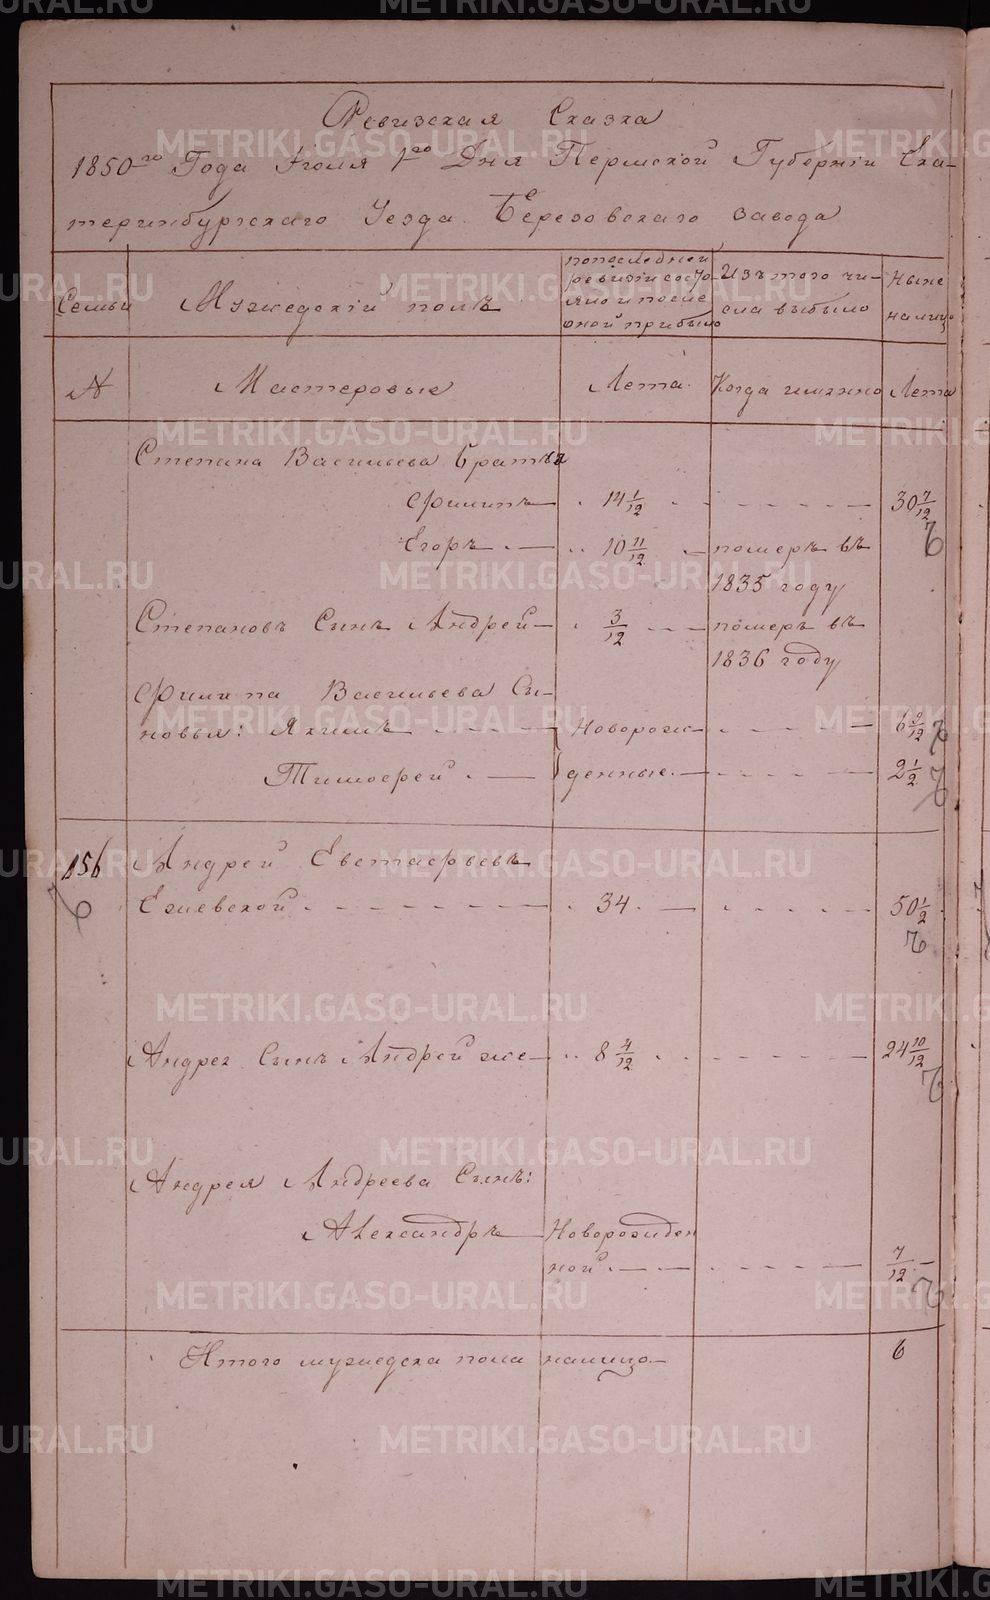 Ревизская Сказка
1850го Года Июля 1го Дня Пермской Губернiи Ека-
теринбургскаго Уезда Березовскаго завода
Семьи
Мужедскiй полъ
попоследней
ревизiи состо-
яло и после
оной прибыло
Изъ того чи-
сла выбыло
Ныне
налицо
№ Мастеровые Лета Когда имянно Лета
Степана Васильева братья
Филипъ 14 1/12 30 7/12
Егоръ 10 11/12 померъ въ
1835 году
Степановъ Сынъ Андрей 3/12 померъ въ
1836 году
Филипа Васильева Сы-
новья: Якимъ Новорож- 6 9/12
Тимофей денные 2 1/2
156 Андрей Евстафьевъ
Ежевской 34 50 1/2
Андрея Сынъ Андрей же 8 4/12 24 10/12
Андрея Андреева Сынъ:
Александръ Новорожден
ной 7/12
Итого мужедска пола налицо 6
METRIKI.GASO-URAL.RU